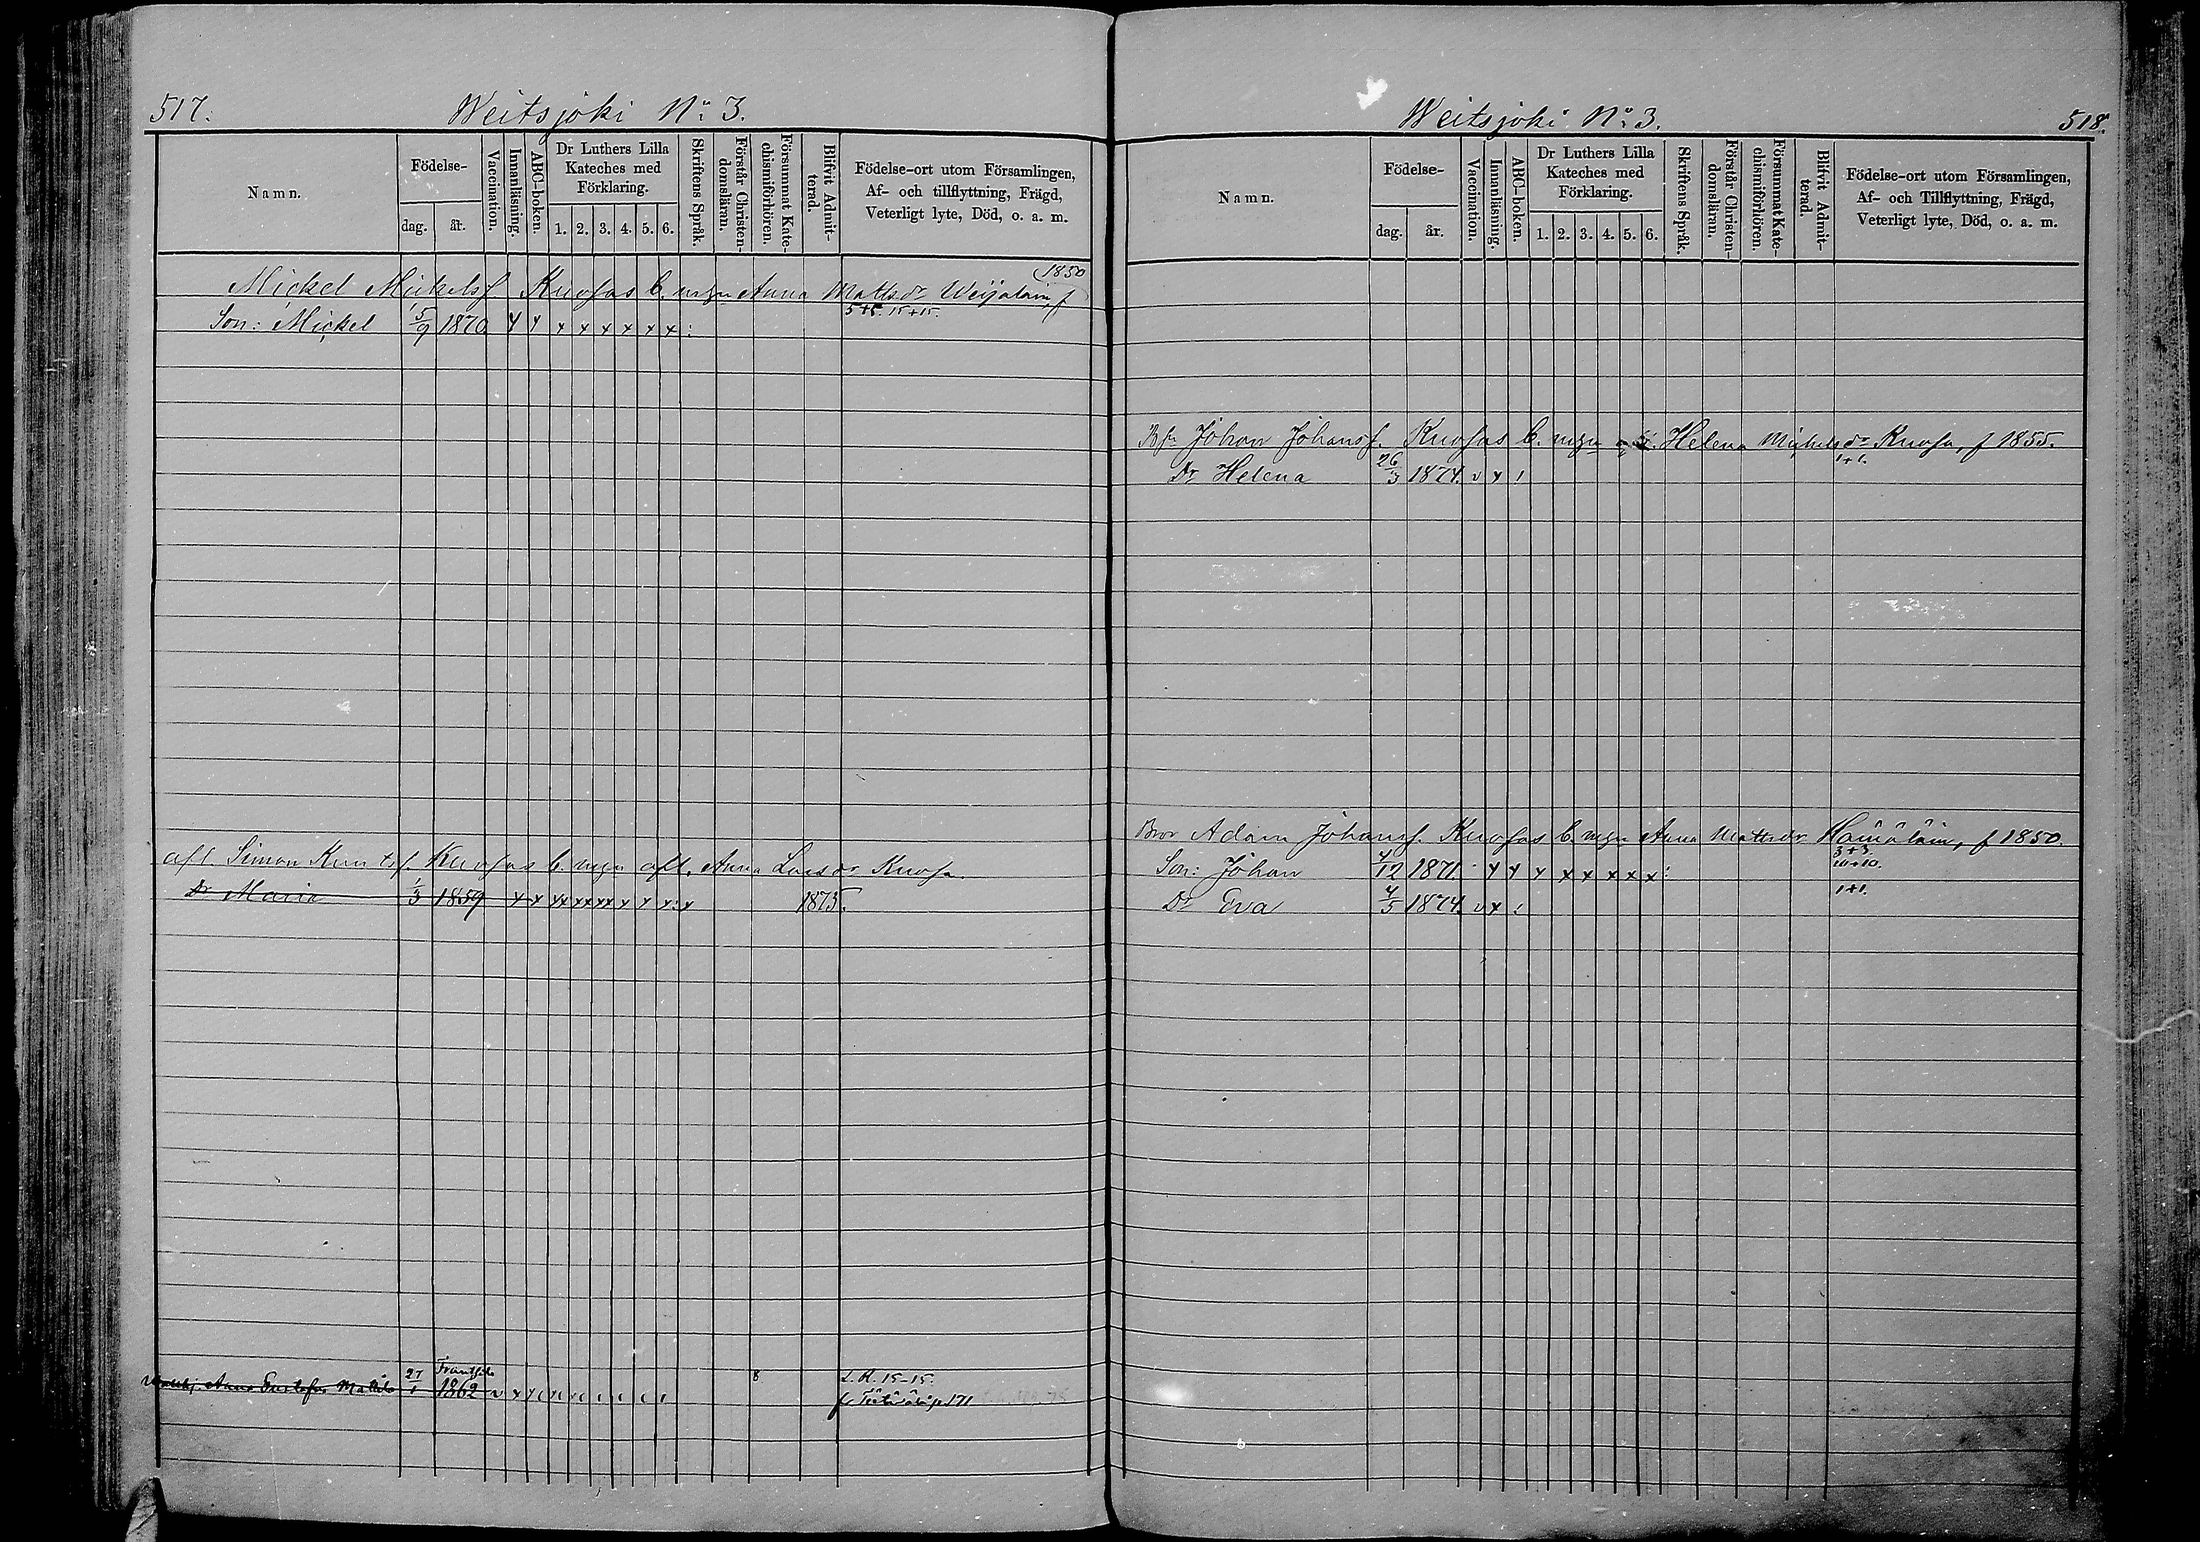 517. Weitsjoki No 3.
Namn.
Födelse-
dag. år.
Vaccination.
Innanläsning.
ABC-boken.
Dr Luthers Lilla
Kateches med
Förklaring.
1. 2. 3. 4. 5. 6.
Skriftens Språk.
Förstår Christen-
domsläran.
Försummat Kate-
chismiförhören.
Blifvit Admit-
terad.
Födelse-ort utom Församlingen,
Af- och tillflyttning, Frägd,
Veterligt lyte, Död, o. a. m.
(1850
Mickel Mickelsf. Knosas b. mgn Anna Matts dr f
5+5. 15+15.
Son: Mickel 5/9 1870 x x x x x x x x :
afl. Simon f. Knosas b. mgn afl. Anna Lars dr Knosa.
Dr Maria 1/3 1859 x x xx xx xx x x x : x 1875.
Anna Gustafva 27/1 1862 8 L.K. 15-15.
171
Weitsjoki No 3. 518.
Namn.
Födelse-
dag. år.
Vaccination.
Innanläsning.
ABC-boken.
Dr Luthers Lilla
Kateches med
Förklaring.
1. 2. 3. 4. 5. 6.
Skriftens Språk.
Förstår Christen-
domsläran.
Försummat Kate-
chismiförhören.
Blifvit Admit-
terad.
Födelse-ort utom Församlingen,
Af- och Tillflyttning, Frägd,
Veterligt lyte, Död, o. a. m.
Johan Johansf. Knosas b. mgn Helena Mickels dr Knosa, f 1855.
1+1.
Dr Helena 26/3 1874. v x !
Bror Adam Johansf. Knosas b. mgn Anna Matts dr f 1850.
3+3.
10+10.
Son: Johan 4/12 1871. x x x x x x x x :
1+1.
Dr Eva 4/5 1874. v x :